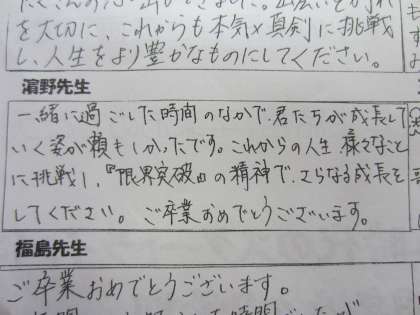 を大切に、これからも本気×真剣に挑戦
し、人生をより豊かなものにしてください。
濱野先生
一緒に過ごした時間のなかで、君たちが成長して
いく姿が頼もしかったです。これからの人生 様々なこと
に挑戦し、『限界突破』の精神で、さらなる成長を
してください。 ご卒業おめでとうございます。
福島先生
ご卒業おめでとうございます。